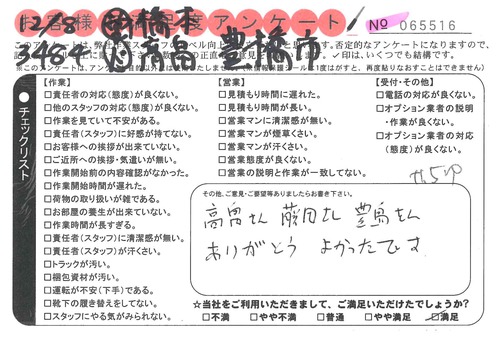 お客様満足度アンケート
No 065516
12/8
3484
豊橋市
このアンケートは、
※このアンケートは、
チェックリスト
【作業】
□責任者の対応(態度)が良くない。
□他のスタッフの対応(態度)が良くない。
□作業を見ていて不安がある。
□責任者(スタッフ)に好感が持てない。
□お客様への挨拶が出来ていない。
□ご近所への挨拶・気遣いが無い。
□作業開始前の内容確認がなかった。
□作業開始時間が遅れた。
□荷物の取り扱いが雑である。
□お部屋の養生が出来ていない。
□作業時間が長すぎる。
□責任者(スタッフ)に清潔感が無い。
□責任者(スタッフ)が汗くさい。
□トラックが汚い。
□梱包資材が汚い。
□運転が不安(下手)である。
□靴下の履き替えをしてない。
□スタッフにやる気がみられない。
【営業】
□見積もり時間に遅れた。
□見積もり時間が長い。
□営業マンに清潔感が無い。
□営業マンが煙草くさい。
□営業マンが汗くさい。
□営業態度が良くない。
□営業の説明と作業が一致してない。
【受付・その他】
□電話の対応が良くない。
□オプション業者の説明
・作業が良くない。
□オプション業者の対応
(態度)が良くない。
その他、ご意見・ご要望等ありましたらお書き下さい。
高畠さん 藤田さん 豊島さん
ありがとう よかったです
☆当社をご利用いただきまして、ご満足いただけたでしょうか?
□不満 □やや不満 □普通 □やや満足 ☑満足